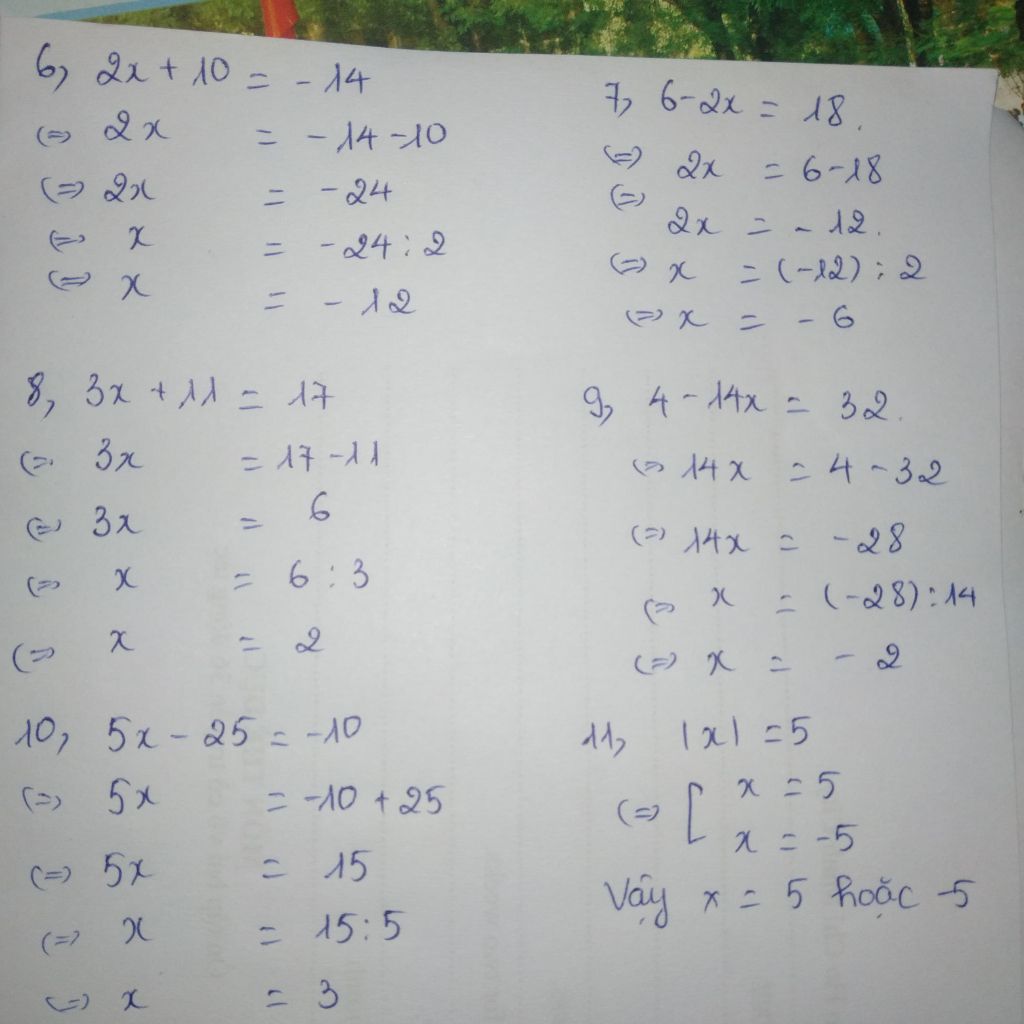 6, 2x + 10 = - 14
(=) 2x = - 14 - 10
(=) 2x = - 24
(=) x = - 24 : 2
(=) x = - 12
7, 6 - 2x = 18.
(=) 2x = 6 - 18
(=) 2x = - 12.
(=) x = (-12) : 2
(=) x = - 6
8, 3x + 11 = 17
(=) 3x = 17 - 11
(=) 3x = 6
(=) x = 6 : 3
(=) x = 2
9, 4 - 14x = 32.
(=) 14x = 4 - 32
(=) 14x = - 28
(=) x = (-28) : 14
(=) x = - 2
10, 5x - 25 = -10
(=) 5x = -10 + 25
(=) 5x = 15
(=) x = 15 : 5
(=) x = 3
11, |x| = 5
(=) [ x = 5
x = -5
Vậy x = 5 hoặc -5